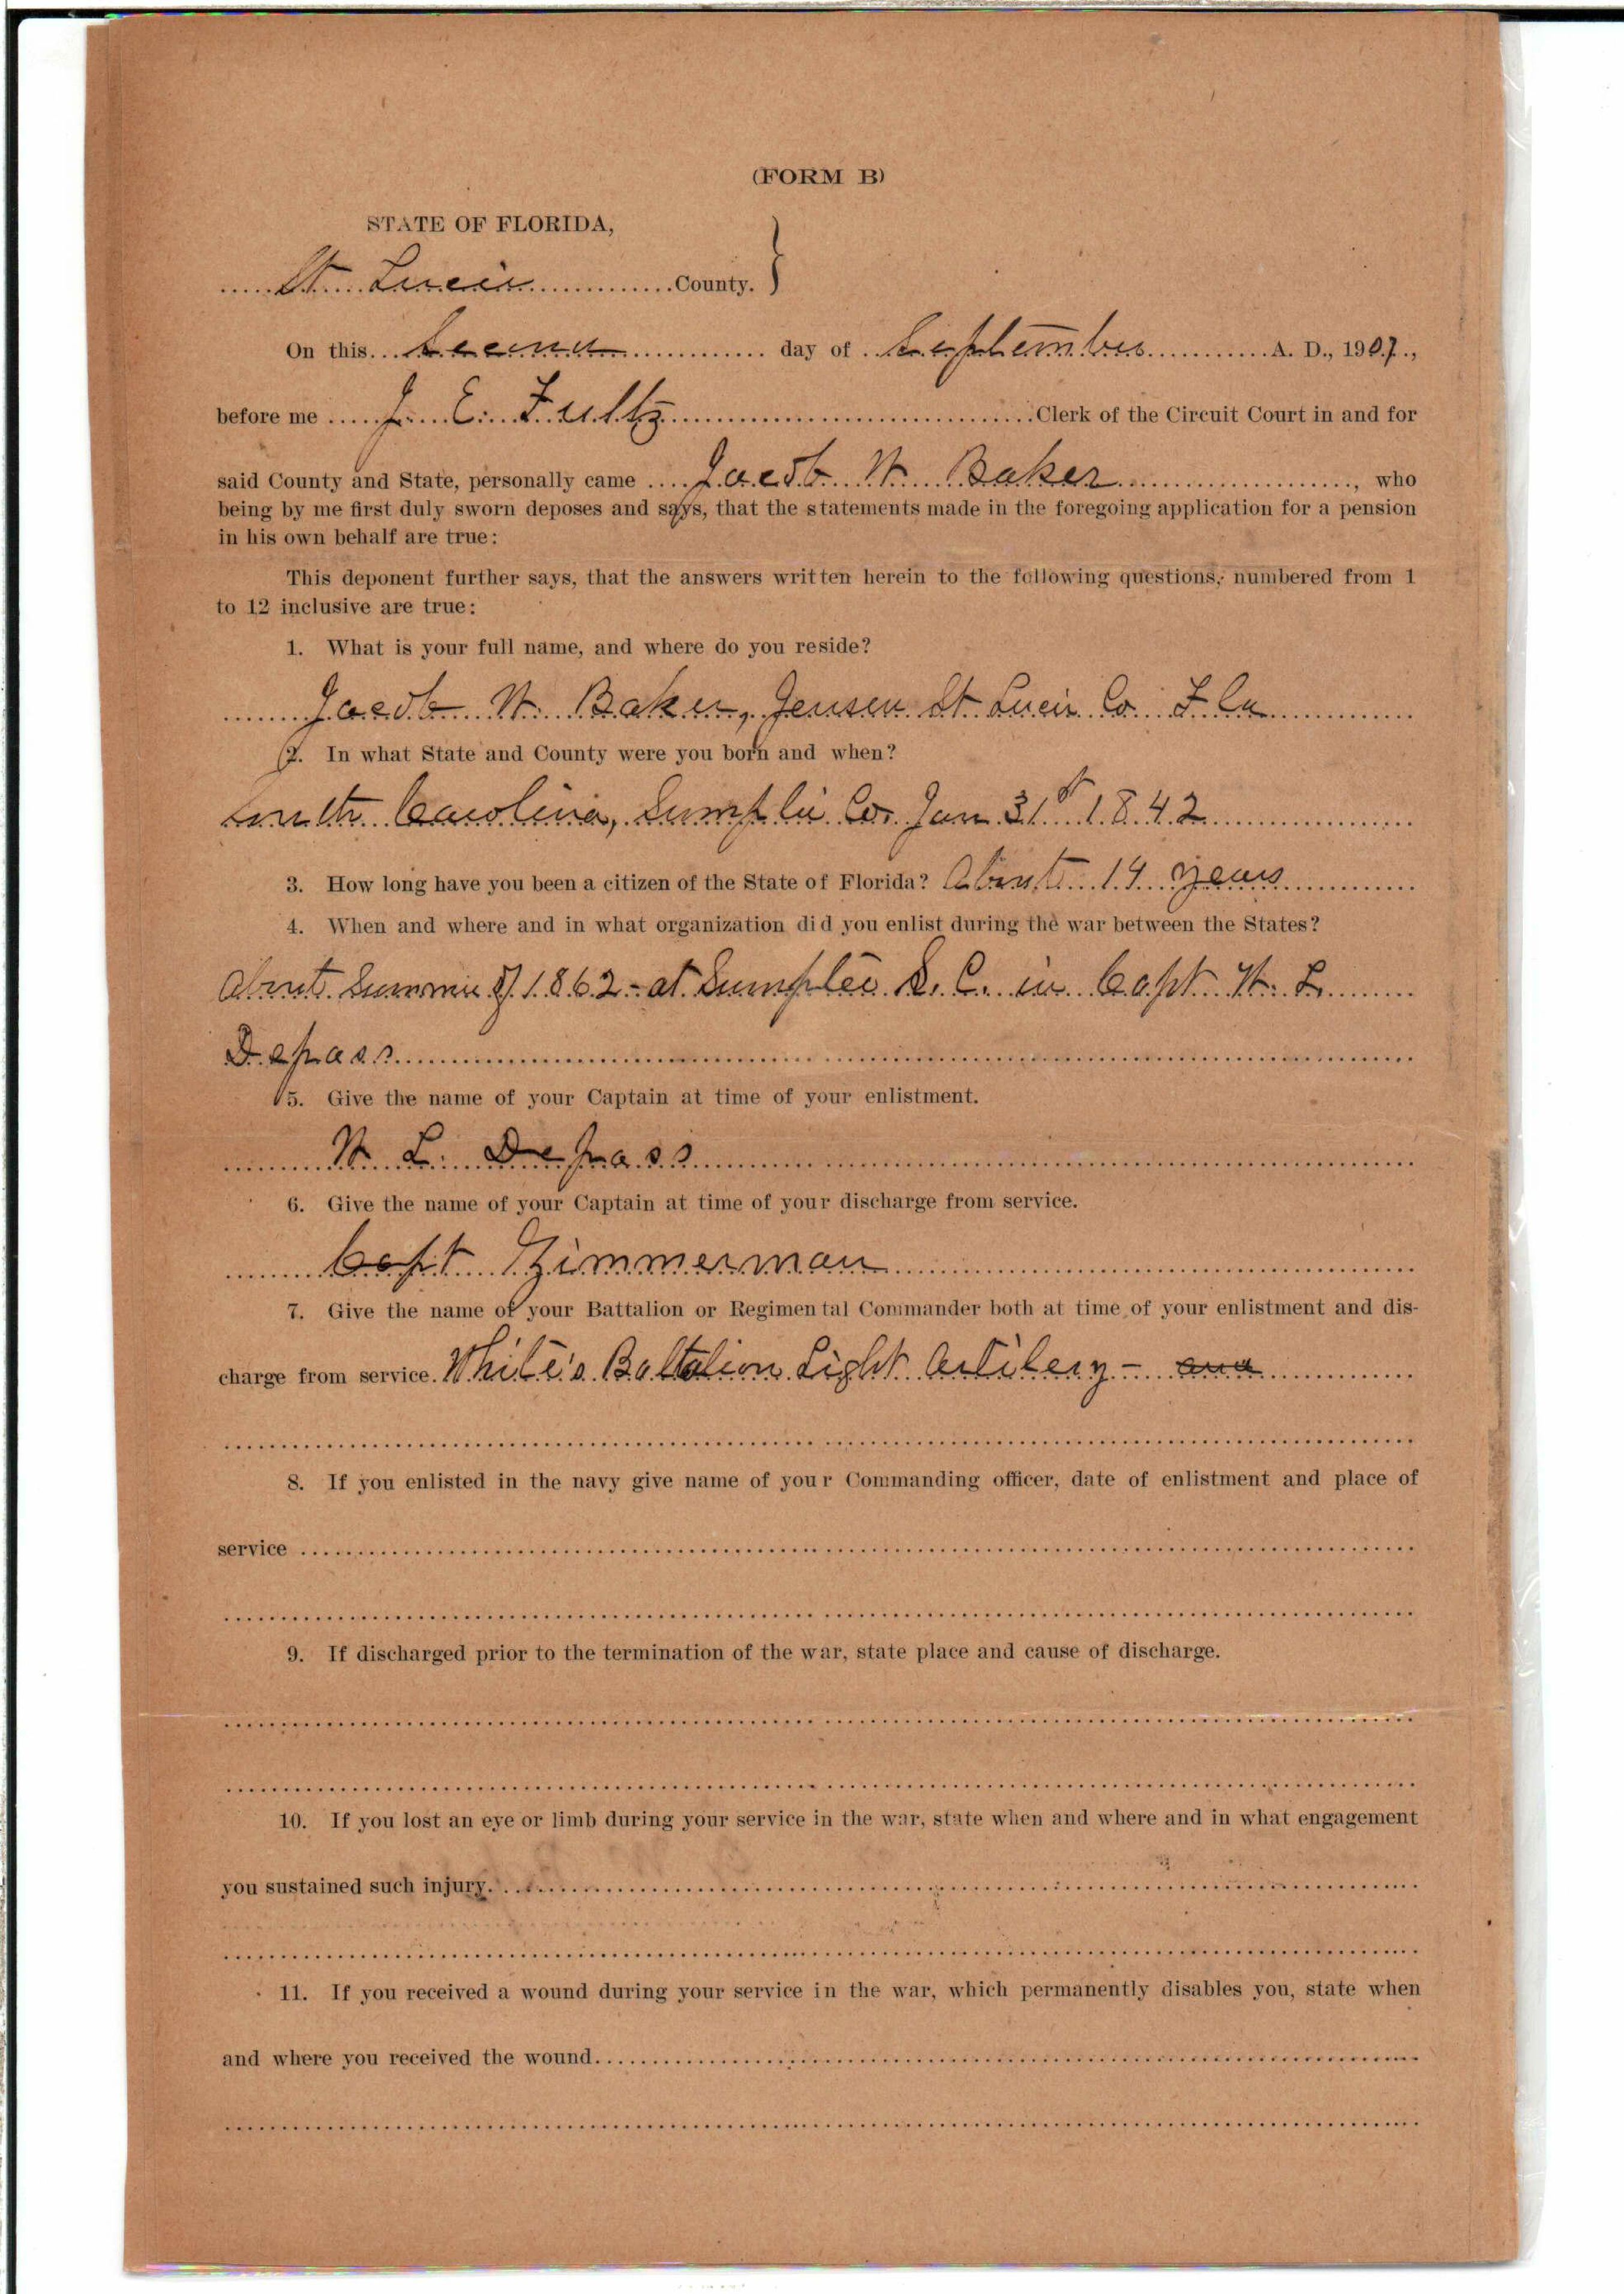 (FORM B)
STATE OF FLORIDA,
St. Lucie County.
On this Second day of September A. D., 1907,
before me J. E. Fultz Clerk of the Circuit Court in and for
said County and State, personally came Jacob W. Baker, who
being by me first duly sworn deposes and says, that the statements made in the foregoing application for a pension
in his own behalf are true:
This deponent further says, that the answers written herein to the following questions, numbered from 1
to 12 inclusive are true:
1. What is your full name, and where do you reside?
Jacob W. Baker, Jensen St Lucie Co. Fla
2. In what State and County were you born and when?
South Carolina, Sumpter Co. Jan 31st 1842
3. How long have you been a citizen of the State of Florida? About 14 years
4. When and where and in what organization did you enlist during the war between the States?
About Summer of 1862 - at Sumpter S. C. in Capt. W. L.
Depass
5. Give the name of your Captain at time of your enlistment.
W. L. Depass
6. Give the name of your Captain at time of your discharge from service.
Capt Zimmerman
7. Give the name of your Battalion or Regimental Commander both at time of your enlistment and dis-
charge from service. White's Battalion Light Artilery - and
8. If you enlisted in the navy give name of your Commanding officer, date of enlistment and place of
service
9. If discharged prior to the termination of the war, state place and cause of discharge.
10. If you lost an eye or limb during your service in the war, state when and where and in what engagement
you sustained such injury.
11. If you received a wound during your service in the war, which permanently disables you, state when
and where you received the wound.